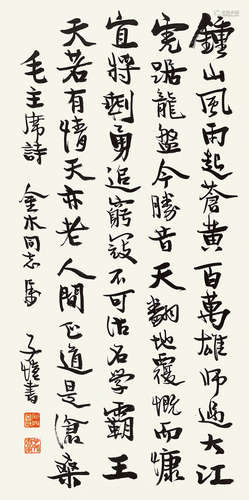 鍾山風雨起蒼黄百萬雄師過大江
虎踞龍盤今勝昔天翻地覆慨而慷
宜將剩勇追窮寇不可沽名学霸王
天若有情天亦老人間正道是滄桑
毛主席詩 金木同志属 子愷書